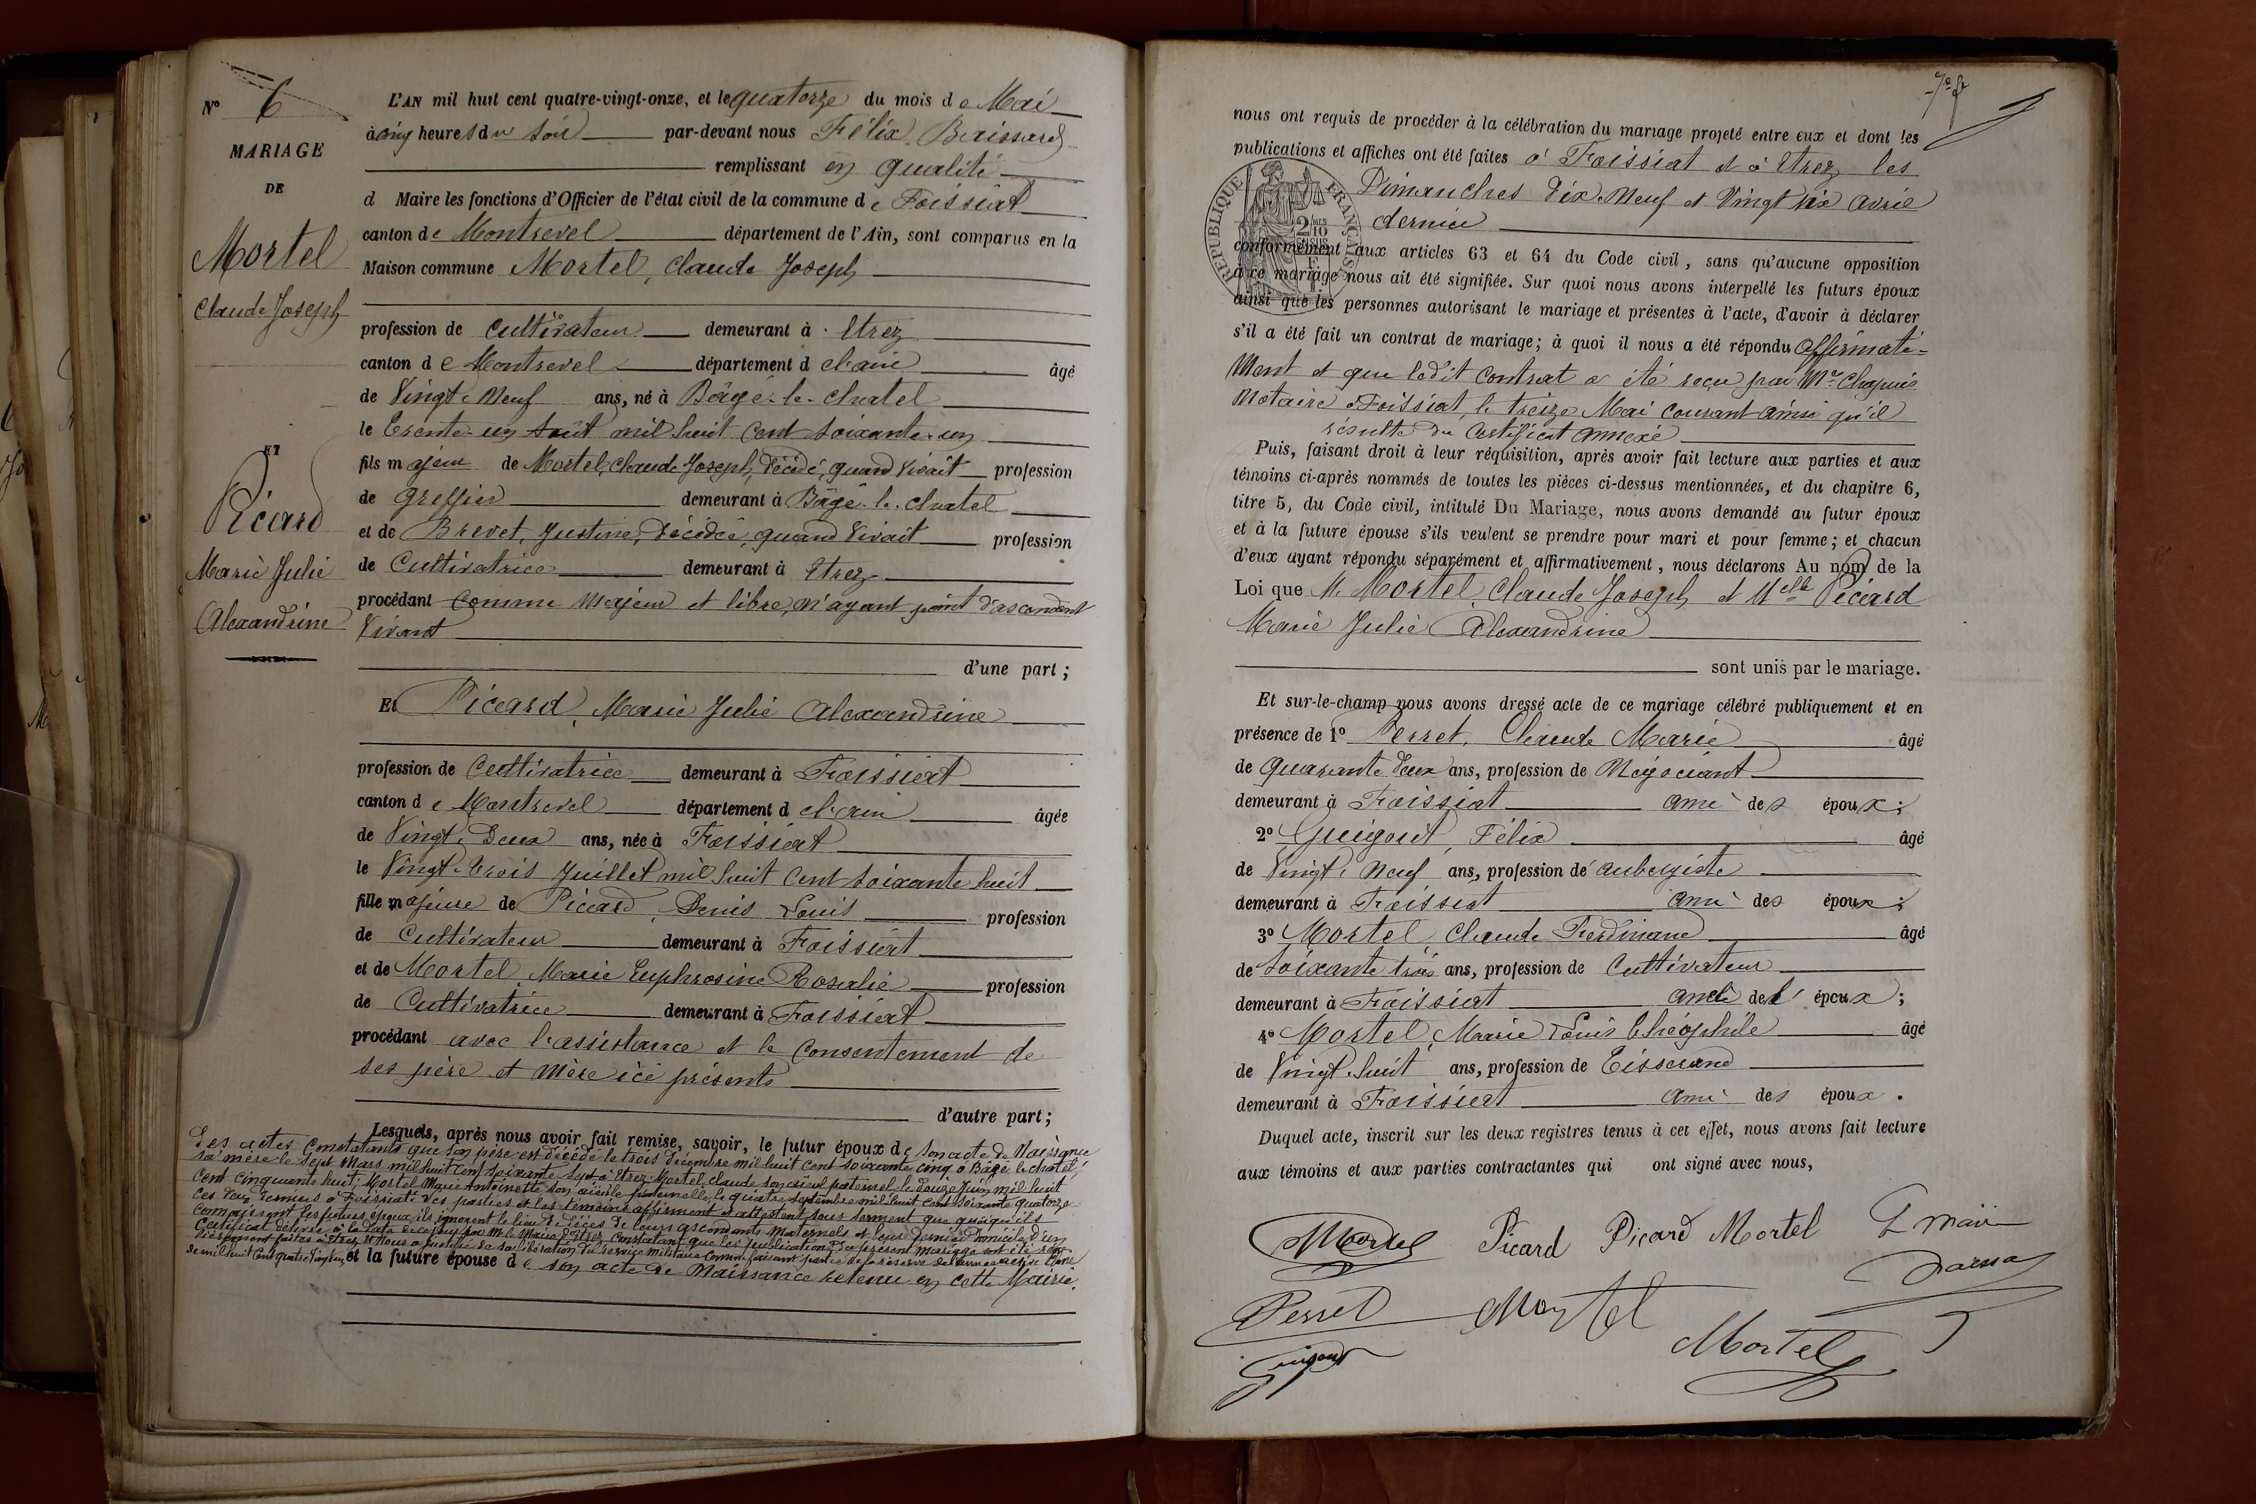 N° 6
MARIAGE
DE
Mortel
Claude Joseph
ET
Picard
Marie Julie
Alexandrine
L'AN mil huit cent quatre-vingt-onze, et le quatorze du mois de Mai
à cinq heures du soir par-devant nous Félix
remplissant en qualité
d Maire les fonctions d'Officier de l'état civil de la commune de Foissiat
canton de Montrevel département de l'Ain, sont comparus en la
Maison commune Mortel, Claude Joseph
profession de Cultivateur demeurant à Etrez
canton de Montrevel département d el'ain âgé
de Vingt-Neuf ans, né à Bâgé-le-Chatel
le Trente-un Août mil huit cent soixante-un
fils majeur de Mortel, Claude Joseph, décédé, quand vivait profession
de Greffier demeurant à Bâgé-le-Chatel
et de Brevet, Justine, décédée, quand vivait profession
de Cultivatrice demeurant à Etrez
procédant comme Majeur et libre, n'ayant point d'ascendant
vivant
d'une part;
Et Picard, Marie Julie Alexandrine
profession de Cultivatrice demeurant à Foissiat
canton de Montrevel département d el'ain âgée
de Vingt-Deux ans, née à Foissiat
le Vingt-trois Juillet mil huit cent soixante-huit
fille majeure de Picard, Denis Louis profession
de Cultivateur demeurant à Foissiat
et de Mortel, Marie Euphrosine Rosalie profession
de Cultivatrice demeurant à Foissiat
procédant avec l'assistance et le consentement de
ses père et mère ici présents
d'autre part;
Lesquels, après nous avoir fait remise, savoir, le futur époux de son acte de Naissance
des actes constatants que son père est décédé le trois décembre mil huit cent soixante cinq à Bâgé le chatel,
sa mère le sept Mars mil huit cent soixante sept à Etrez, Mortel, Claude son aïeul paternel le douze Juin mil huit
cent cinquante huit, Mortel Marie Antoinette son aïeule paternelle, le quatre septembre mil huit cent soixante quatorze
ces deux derniers à Foissiat. Des parties et les témoins affirment et attestent sous serment que quoiqu'ils
connaissent les futurs époux, ils ignorent le lieu de décès de leurs ascendants maternels et leur dernier domicile, d'un
certificat délivré à la date de ce jour par Mr le Maire d'Etrez, constatant que les publications du présent mariage ont été
faites à Etrez et Nous a justifié de sa libération du service militaire comme faisant partie de la réserve de l'armée active
de mil huit cent quatre vingt un et la future épouse de son acte de Naissance retenu en cette Mairie.
nous ont requis de procéder à la célébration du mariage projeté entre eux et dont les
publications et affiches ont été faites à Foissiat et à Etrez les
Dimanches Dix-Neuf et Vingt six avril
dernier
REPUBLIQUE FRANÇAISE
2/10 EN SUS
conformément aux articles 63 et 64 du Code civil, sans qu'aucune opposition
à ce mariage nous ait été signifiée. Sur quoi nous avons interpellé les futurs époux
ainsi que les personnes autorisant le mariage et présentes à l'acte, d'avoir à déclarer
s'il a été fait un contrat de mariage; à quoi il nous a été répondu affirmati-
vement et que ledit contrat a été reçu par Me Chapuis
Notaire à Foissiat, le treize Mai courant ainsi qu'il
résulte du Certificat annexé
Puis, faisant droit à leur réquisition, après avoir fait lecture aux parties et aux
témoins ci-après nommés de toutes les pièces ci-dessus mentionnées, et du chapitre 6,
titre 5, du Code civil, intitulé Du Mariage, nous avons demandé au futur époux
et à la future épouse s'ils veulent se prendre pour mari et pour femme; et chacun
d'eux ayant répondu séparément et affirmativement, nous déclarons Au nom de la
Loi que M. Mortel, Claude Joseph et Melle Picard
Marie Julie Alexandrine
sont unis par le mariage.
Et sur-le-champ nous avons dressé acte de ce mariage célébré publiquement et en
présence de 1° Perret, Claude Marie âgé
de quarante deux ans, profession de Négociant
demeurant à Foissiat ami des époux;
2° Guigout, Félix âgé
de Vingt-Neuf ans, profession de aubergiste
demeurant à Foissiat ami des époux;
3° Mortel, Claude Ferdinand âgé
de Soixante trois ans, profession de Cultivateur
demeurant à Foissiat oncle de l' époux;
4° Mortel, Marie Louis Théophile âgé
de Vingt-huit ans, profession de Tisserand
demeurant à Foissiat ami des époux.
Duquel acte, inscrit sur les deux registres tenus à cet effet, nous avons fait lecture
aux témoins et aux parties contractantes qui ont signé avec nous,
Mortel Picard Picard Mortel
Perret Mortel
Mortel
Guigout